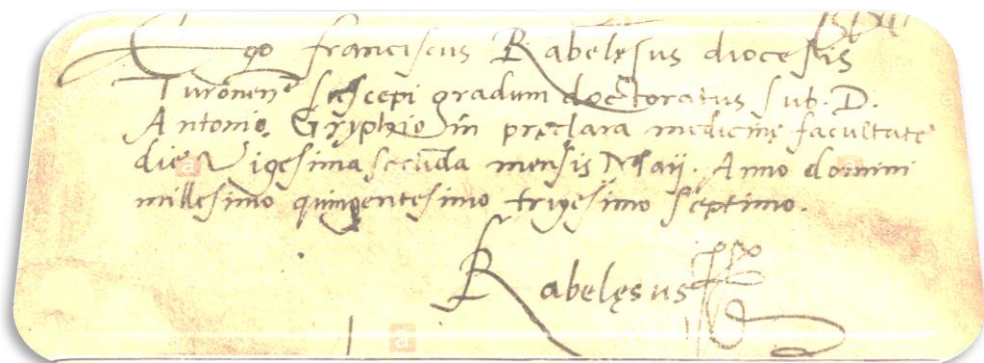 Ego franciscus Rabelęsus diocesis
Turonenẽ suscepi gradum doctoratus sub. D.
Antonio Gryphio in pręclara medicinę facultate
die Vigesima secũda mensis Maij. Anno domini
millesimo quingentesimo trigesimo septimo.
Rabelęsus